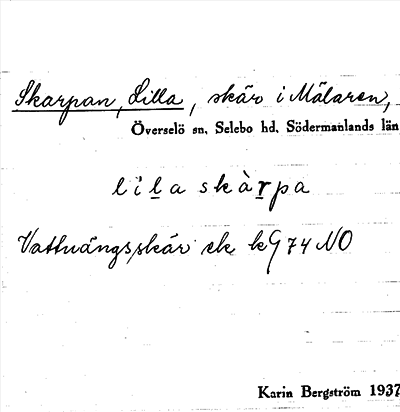 Skarpan, Lilla, skär i Mälaren,
Överselö sn, Selebo hd, Södermanlands län
lila skàrpa
Vattuängsskär ek kG 74 NO
Karin Bergström 1937